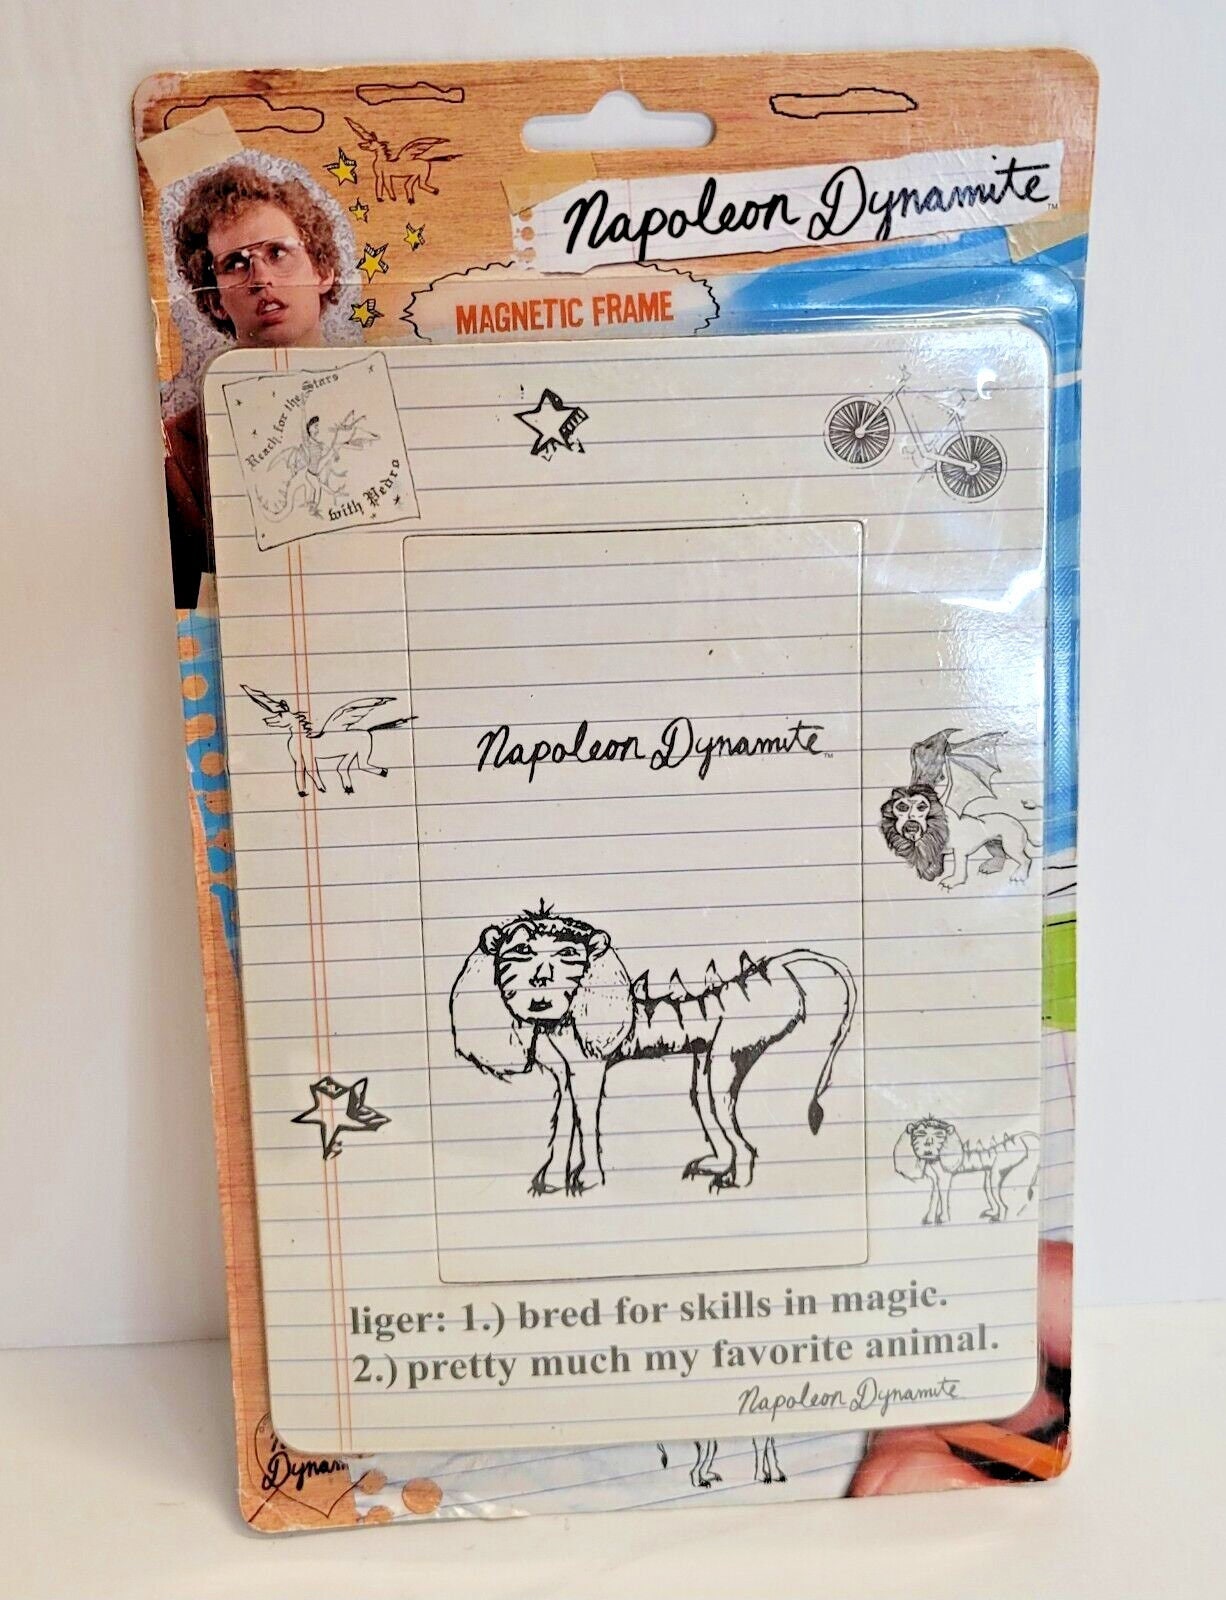 Napoleon Dynamite™
MAGNETIC FRAME
Reach for the Stars
with Pedro
Napoleon Dynamite™
liger: 1.) bred for skills in magic.
2.) pretty much my favorite animal.
Napoleon Dynamite